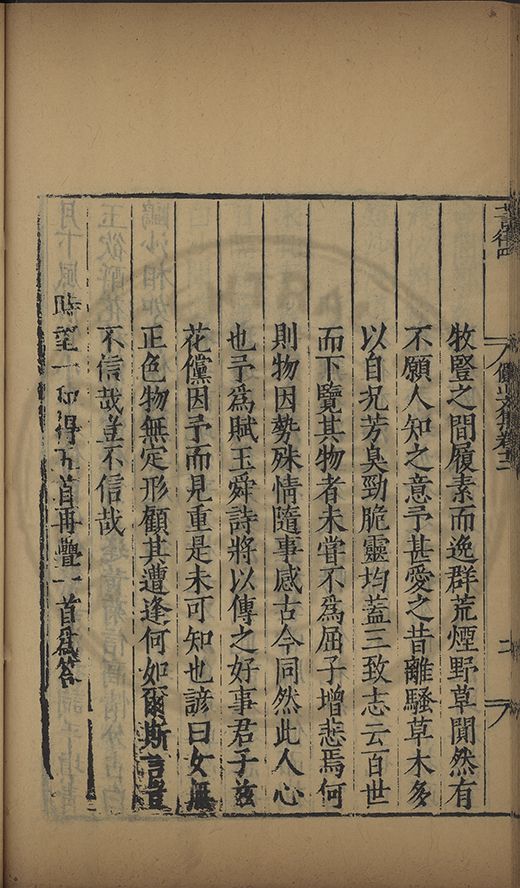 牧豎之間履素而逸群荒煙野草閴然有
不願人知之意予甚愛之昔離騷草木多
以自況芳臭勁脆靈均蓋三致志云百世
而下覽其物者未嘗不爲屈子增悲焉何
則物因勢殊情隨事感古今同然此人心
也予爲賦玉舜詩將以傳之好事君子兹
花儻因予而見重是未可知也諺曰女無
正色物無定形顧其遭逢何如爾斯言豈
不信哉豈不信哉
月下風時望一
得五首再疊一首爲答